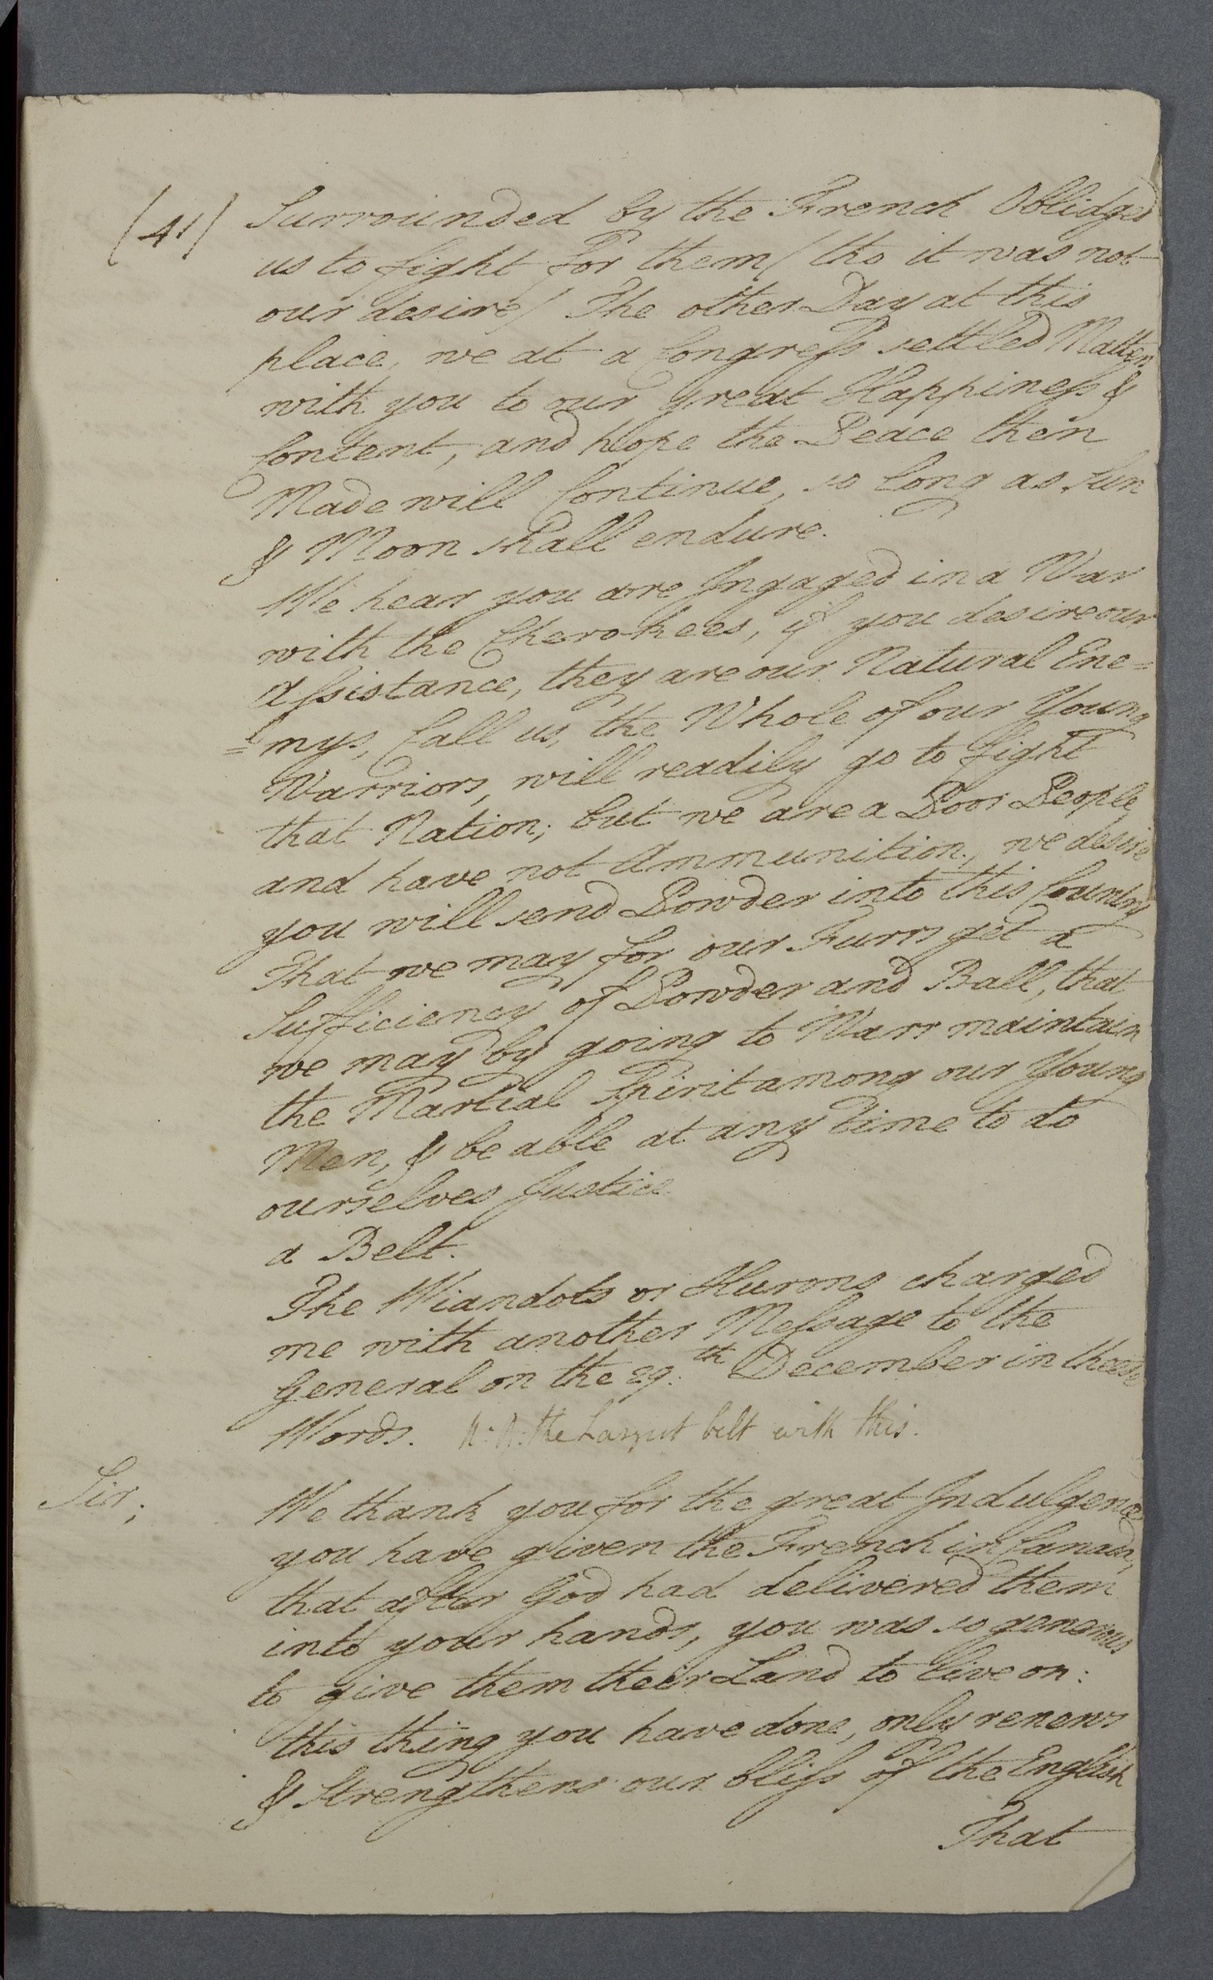 (41) Surrounded by the French Oblidged
us to fight for them (tho it was not
our desire) The other Day at this
place, we at a Congress settled Matters
with you to our great Happiness &
Content, and hope the Peace then
Made will Continue, so long as Sun
& Moon shall endure.
We hear you are Ingaged in a War
with the Cherokees, if you desire our
Assistance, they are our Natural Ene=
=mys, Call us, the Whole of our Young
Warriors, will readily go to fight
that Nation; but we are a Poor People
and have not Ammunition, we desire
you will send Powder into this Country
That we may for our Furrs get a
Sufficiency of Powder and Ball, that
we may by going to Warr maintain
the Martial Spirit among our Young
Men, & be able at any time to do
ourselves Justice
a Belt.
The Wiandots or Hurons charged
me with another Message to the
General on the 29th December in these
Words. N:B: the Largest belt with this.
Sir, We thank you for the great Indulgence
you have given the French in Canada,
that after God had delivered them
into your hands, you was so generous
to give them their Land to live on:
this thing you have done, only renews
& Strengthens our bliss of the English
That